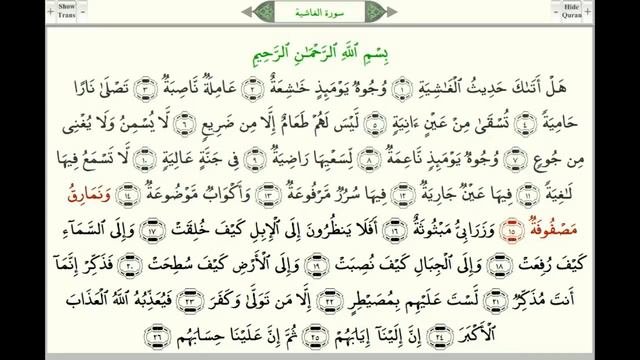 Show Trans
سورة الغاشية
Hide Quran
بِسْمِ اللَّهِ الرَّحْمَٰنِ الرَّحِيمِ
هَلْ أَتَىٰكَ حَدِيثُ الْغَٰشِيَةِ ١ وُجُوهٌ يَوْمَئِذٍ خَٰشِعَةٌ ٢ عَامِلَةٌ نَّاصِبَةٌ ٣ تَصْلَىٰ نَارًا
حَامِيَةً ٤ تُسْقَىٰ مِنْ عَيْنٍ ءَانِيَةٍ ٥ لَّيْسَ لَهُمْ طَعَامٌ إِلَّا مِن ضَرِيعٍ ٦ لَّا يُسْمِنُ وَلَا يُغْنِى
مِن جُوعٍ ٧ وُجُوهٌ يَوْمَئِذٍ نَّاعِمَةٌ ٨ لِّسَعْيِهَا رَاضِيَةٌ ٩ فِى جَنَّةٍ عَالِيَةٍ ١٠ لَّا تَسْمَعُ فِيهَا
لَٰغِيَةً ١١ فِيهَا عَيْنٌ جَارِيَةٌ ١٢ فِيهَا سُرُرٌ مَّرْفُوعَةٌ ١٣ وَأَكْوَابٌ مَّوْضُوعَةٌ ١٤ وَنَمَارِقُ
مَصْفُوفَةٌ ١٥ وَزَرَابِىُّ مَبْثُوثَةٌ ١٦ أَفَلَا يَنظُرُونَ إِلَى الْإِبِلِ كَيْفَ خُلِقَتْ ١٧ وَإِلَى السَّمَآءِ
كَيْفَ رُفِعَتْ ١٨ وَإِلَى الْجِبَالِ كَيْفَ نُصِبَتْ ١٩ وَإِلَى الْأَرْضِ كَيْفَ سُطِحَتْ ٢٠ فَذَكِّرْ إِنَّمَآ
أَنتَ مُذَكِّرٌ ٢١ لَّسْتَ عَلَيْهِم بِمُصَيْطِرٍ ٢٢ إِلَّا مَن تَوَلَّىٰ وَكَفَرَ ٢٣ فَيُعَذِّبُهُ اللَّهُ الْعَذَابَ
الْأَكْبَرَ ٢٤ إِنَّ إِلَيْنَآ إِيَابَهُمْ ٢٥ ثُمَّ إِنَّ عَلَيْنَا حِسَابَهُم ٢٦